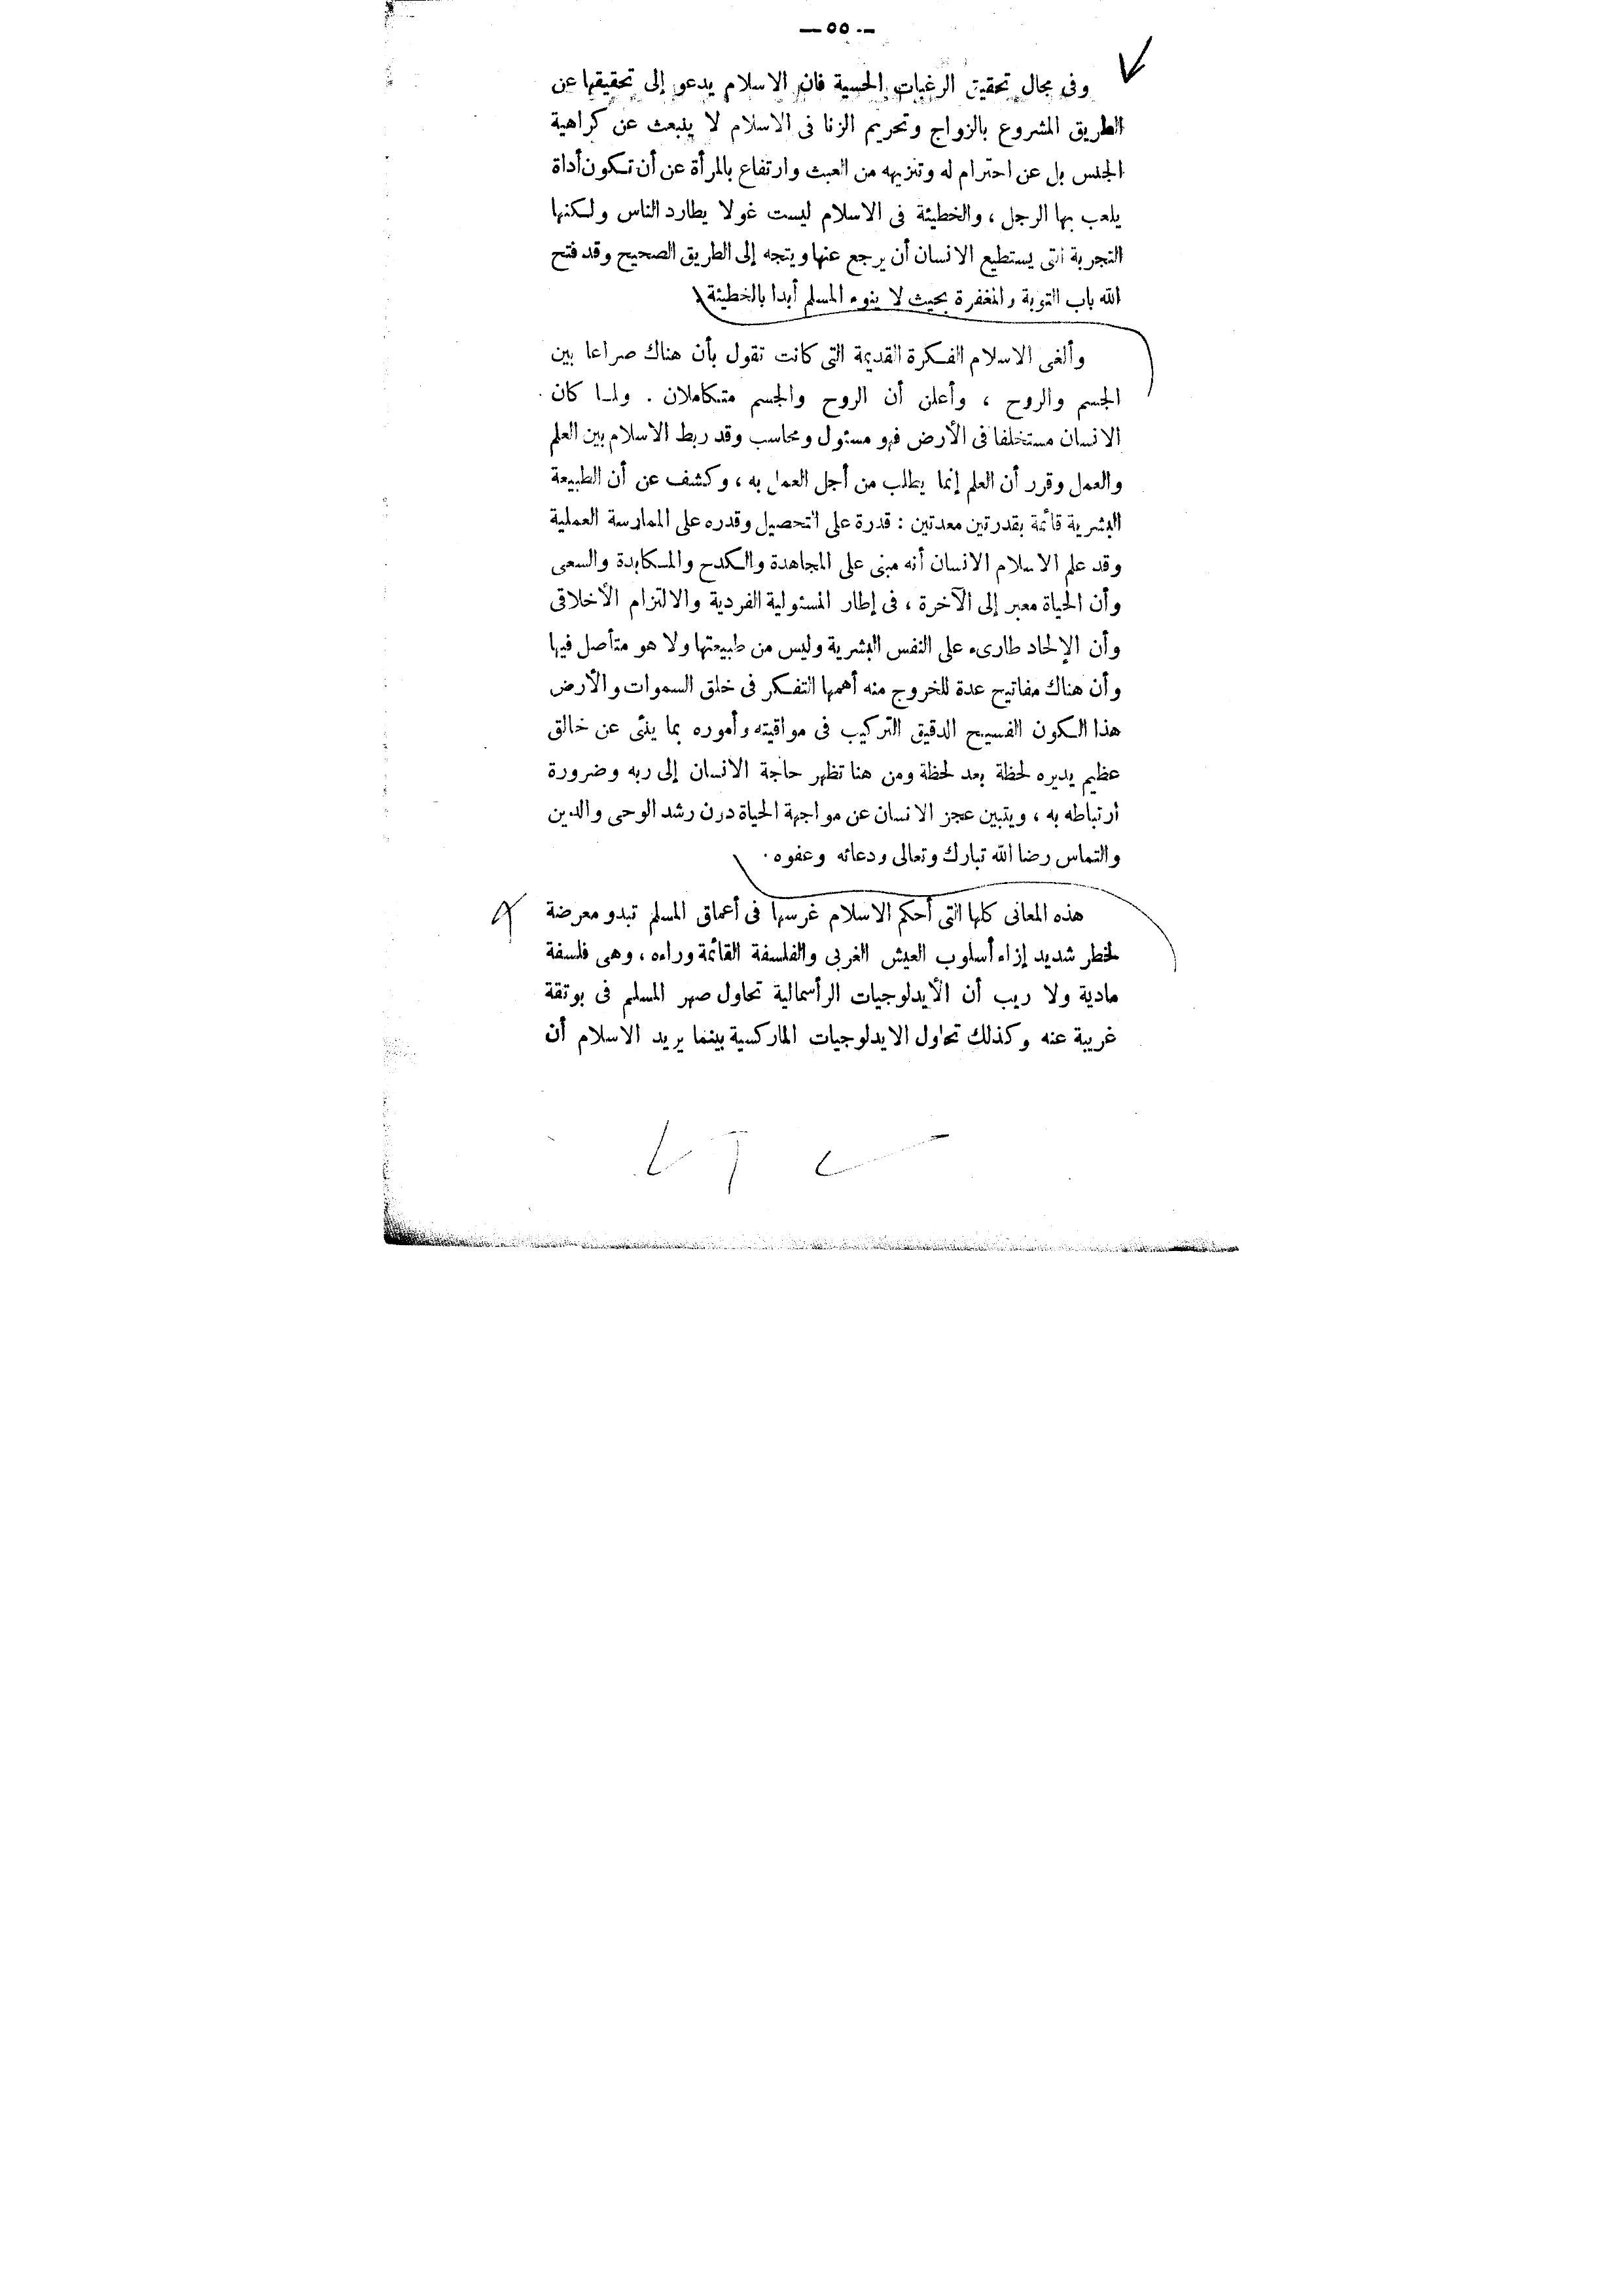 — ٥٥ —
وفى مجال تحقيق الرغبات الحسية فان الاسلام يدعو إلى تحقيقها عن
الطريق المشروع بالزواج وتحريم الزنا فى الاسلام لا ينبعث عن كراهية
الجنس بل عن احترام له وتنزيهه من العبث وارتفاع بالمرأة عن أن تكون أداة
يلعب بها الرجل ، والخطيئة فى الاسلام ليست غولا يطارد الناس ولكنها
التجربة التى يستطيع الانسان أن يرجع عنها ويتجه إلى الطريق الصحيح وقد فتح
الله باب التوبة والمغفرة بحيث لا ينوء المسلم أبدا بالخطيئة .
وألغى الاسلام الفكرة القديمة التى كانت تقول بأن هناك صراعا بين
الجسم والروح ، وأعلن أن الروح والجسم متكاملان . ولما كان
الانسان مستخلفا فى الأرض فهو مسئول ومحاسب وقد ربط الاسلام بين العلم
والعمل وقرر أن العلم إنما يطلب من أجل العمل به ، وكشف عن أن الطبيعة
البشرية قائمة بقدرتين معدتين : قدرة على التحصيل وقدره على الممارسة العملية
وقد علم الاسلام الانسان أنه مبنى على المجاهدة والكدح والمكابدة والسعى
وأن الحياة معبر إلى الآخرة ، فى إطار المسئولية الفردية والالتزام الأخلاقى
وأن الإلحاد طارىء على النفس البشرية وليس من طبيعتها ولا هو متأصل فيها
وأن هناك مفاتيح عدة للخروج منه أهمها التفكر فى خلق السموات والأرض
هذا الكون الفسيح الدقيق التركيب فى مواقيته وأموره بما ينئى عن خالق
عظيم يديره لحظة بعد لحظة ومن هنا تظهر حاجة الانسان إلى ربه وضرورة
ارتباطه به ، ويتبين عجز الانسان عن مواجهة الحياة درن رشد الوحى والدين
والتماس رضا الله تبارك وتعالى ودعائه وعفوه .
هذه المعانى كلها التى أحكم الاسلام غرسها فى أعماق المسلم تبدو معرضة
لخطر شديد إزاء أسلوب العيش الغربى والفلسفة القائمة وراءه ، وهى فلسفة
مادية ولا ريب أن الأيدلوجيات الرأسمالية تحاول صهر المسلم فى بوتقة
غريبة عنه وكذلك تحاول الايدلوجيات الماركسية بينما يريد الاسلام أن